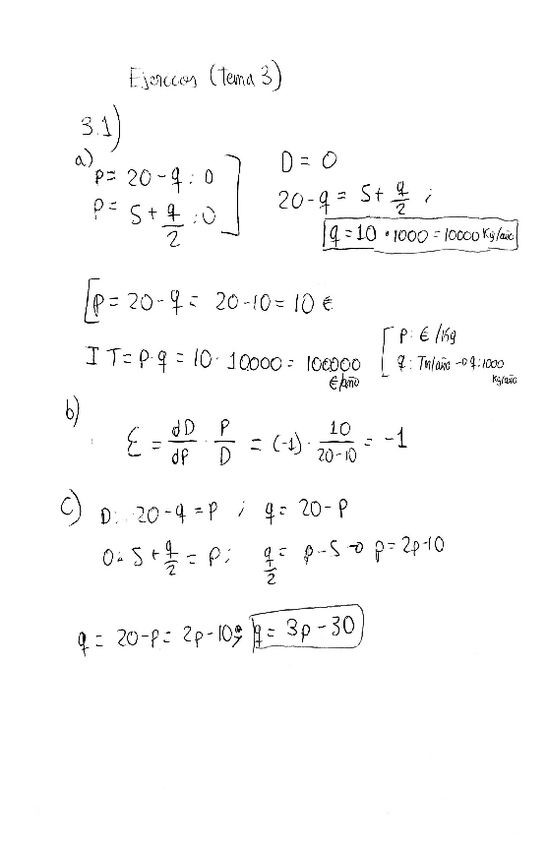 Ejercicios (tema 3)
3.1)
a) p = 20 - q : D
p = 5 + q/2 : O
D = O
20 - q = 5 + q/2 ;
q = 10 · 1000 = 10000 Kg/año
p = 20 - q = 20 - 10 = 10 €
IT = p · q = 10 · 10000 = 100000 €/año
p : € /Kg
q : Tm/año → q · 1000 Kg/año
b)
Ɛ = dD/dp · P/D = (-1) · 10/20-10 = -1
c) D: 20 - q = p ; q = 20 - p
O: 5 + q/2 = p ; q/2 = p - 5 → p = 2p - 10
q = 20 - p = 2p - 10 ; q = 3p - 30